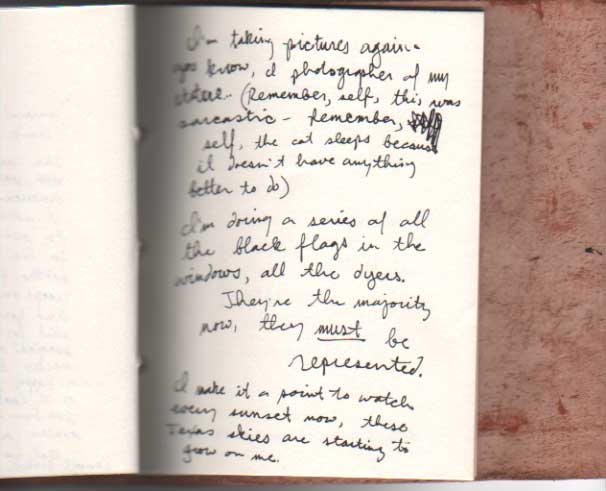 I'm taking pictures again -
you know, a photographer of my
stature.. (Remember, self, this was
sarcastic - Remember,
self, the cat sleeps because
it doesn't have anything
better to do)
I'm doing a series of all
the black flags in the
windows, all the dyers.
They're the majority
now, they must be
represented.
I make it a point to watch
every sunset now, these
Texas skies are starting to
grow on me.